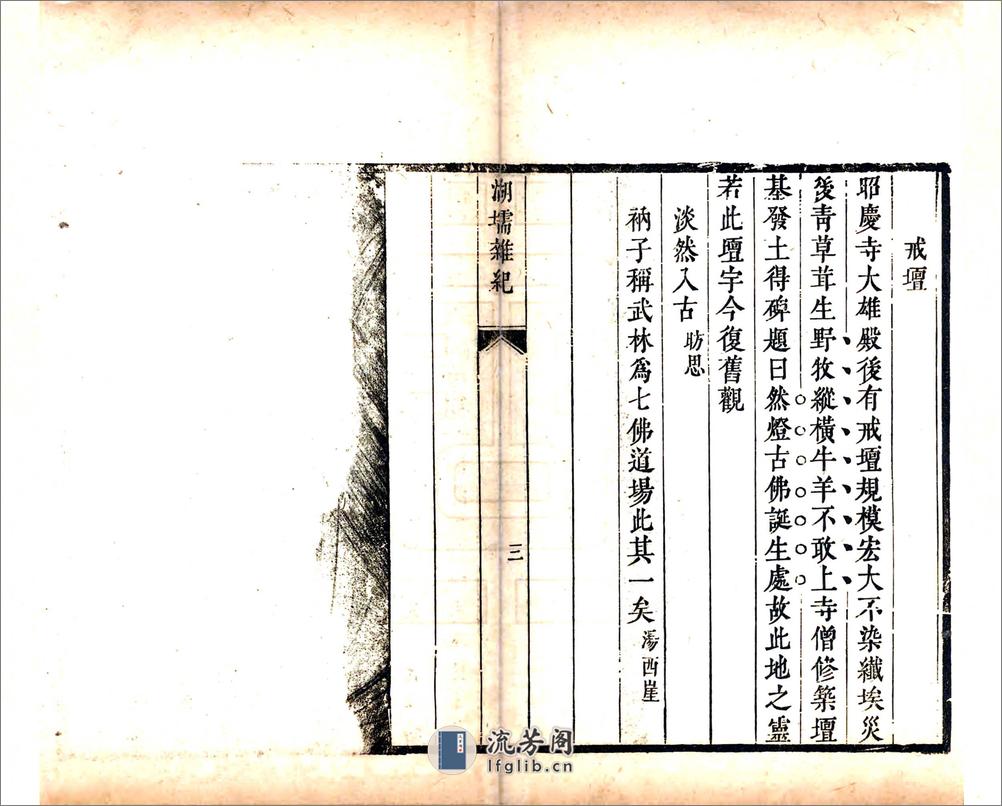 戒壇
昭慶寺大雄殿後有戒壇規模宏大不染纖埃災
後青草茸生野牧縱橫牛羊不敢上寺僧修築壇
基發土得碑題曰然燈古佛誕生處故此地之靈
若此壇宇今復舊觀
淡然入古 昉思
衲子稱武林爲七佛道場此其一矣 湯西崖
湖壖雜紀
三
流芳阁
lfglib.cn